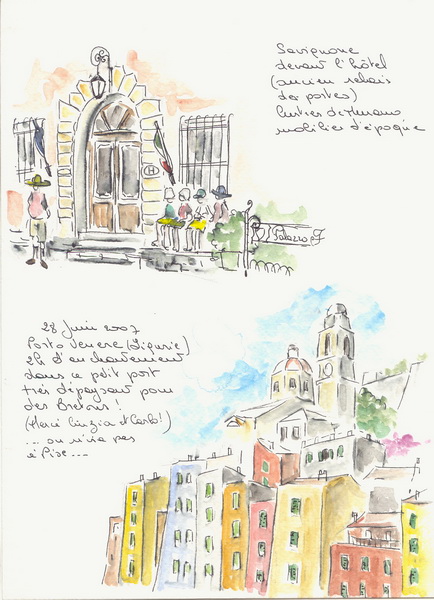 Savignone
devant l'hôtel
(ancien relais
des postes)
lustres de Murano
mobilier d'époque
Palazzo F
28 Juin 2007
Porto Venere (Ligurie)
2h d'enchantement
dans ce petit port
très dépaysant pour
des Bretons !
(Merci Cinzia et Carlo !)
... on n'ira pas
à Pise ...